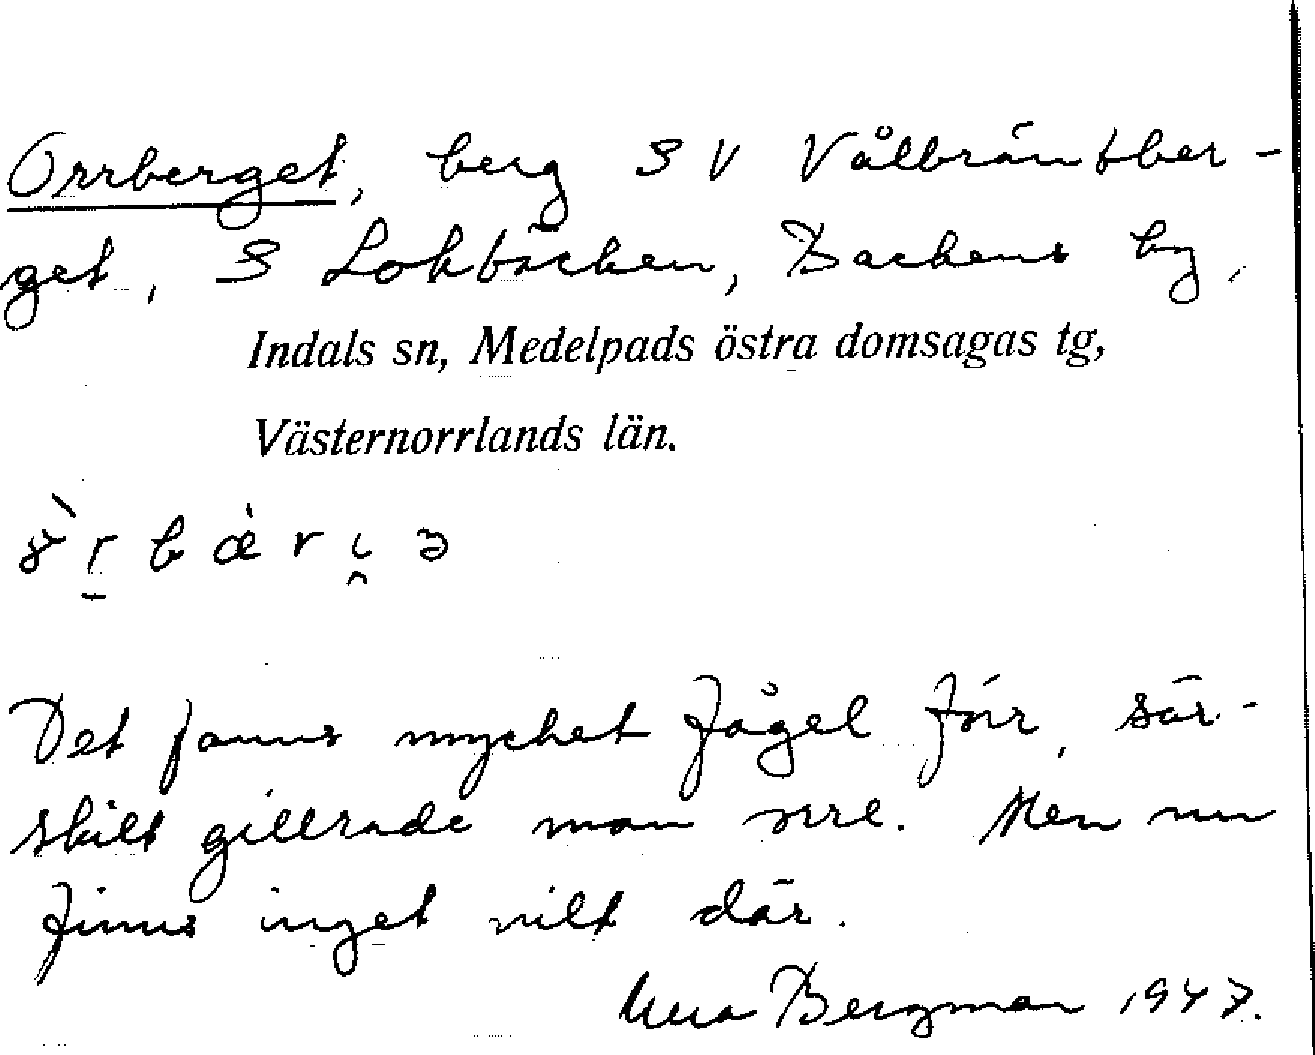 Orrberget, berg SV Vålbräntber-
get, S Lokbäcken, Backens by,
Indals sn, Medelpads östra domsagas tg,
Västernorrlands län.
Det fanns mycket fågel förr, sär-
skilt gillrade man orre. Men nu
finns inget vilt där.
Bergman 1947.